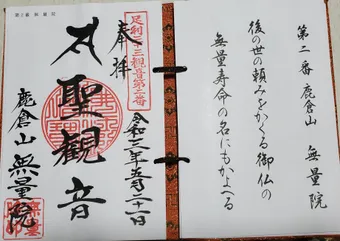 第二番 鹿倉山 無量院
後の世の頼みをかくる御仏の
無量寿命の名にもかよへる
足利三十三観音第二番
奉拝
令和二年五月二十一日
聖観音
鹿倉山 無量院